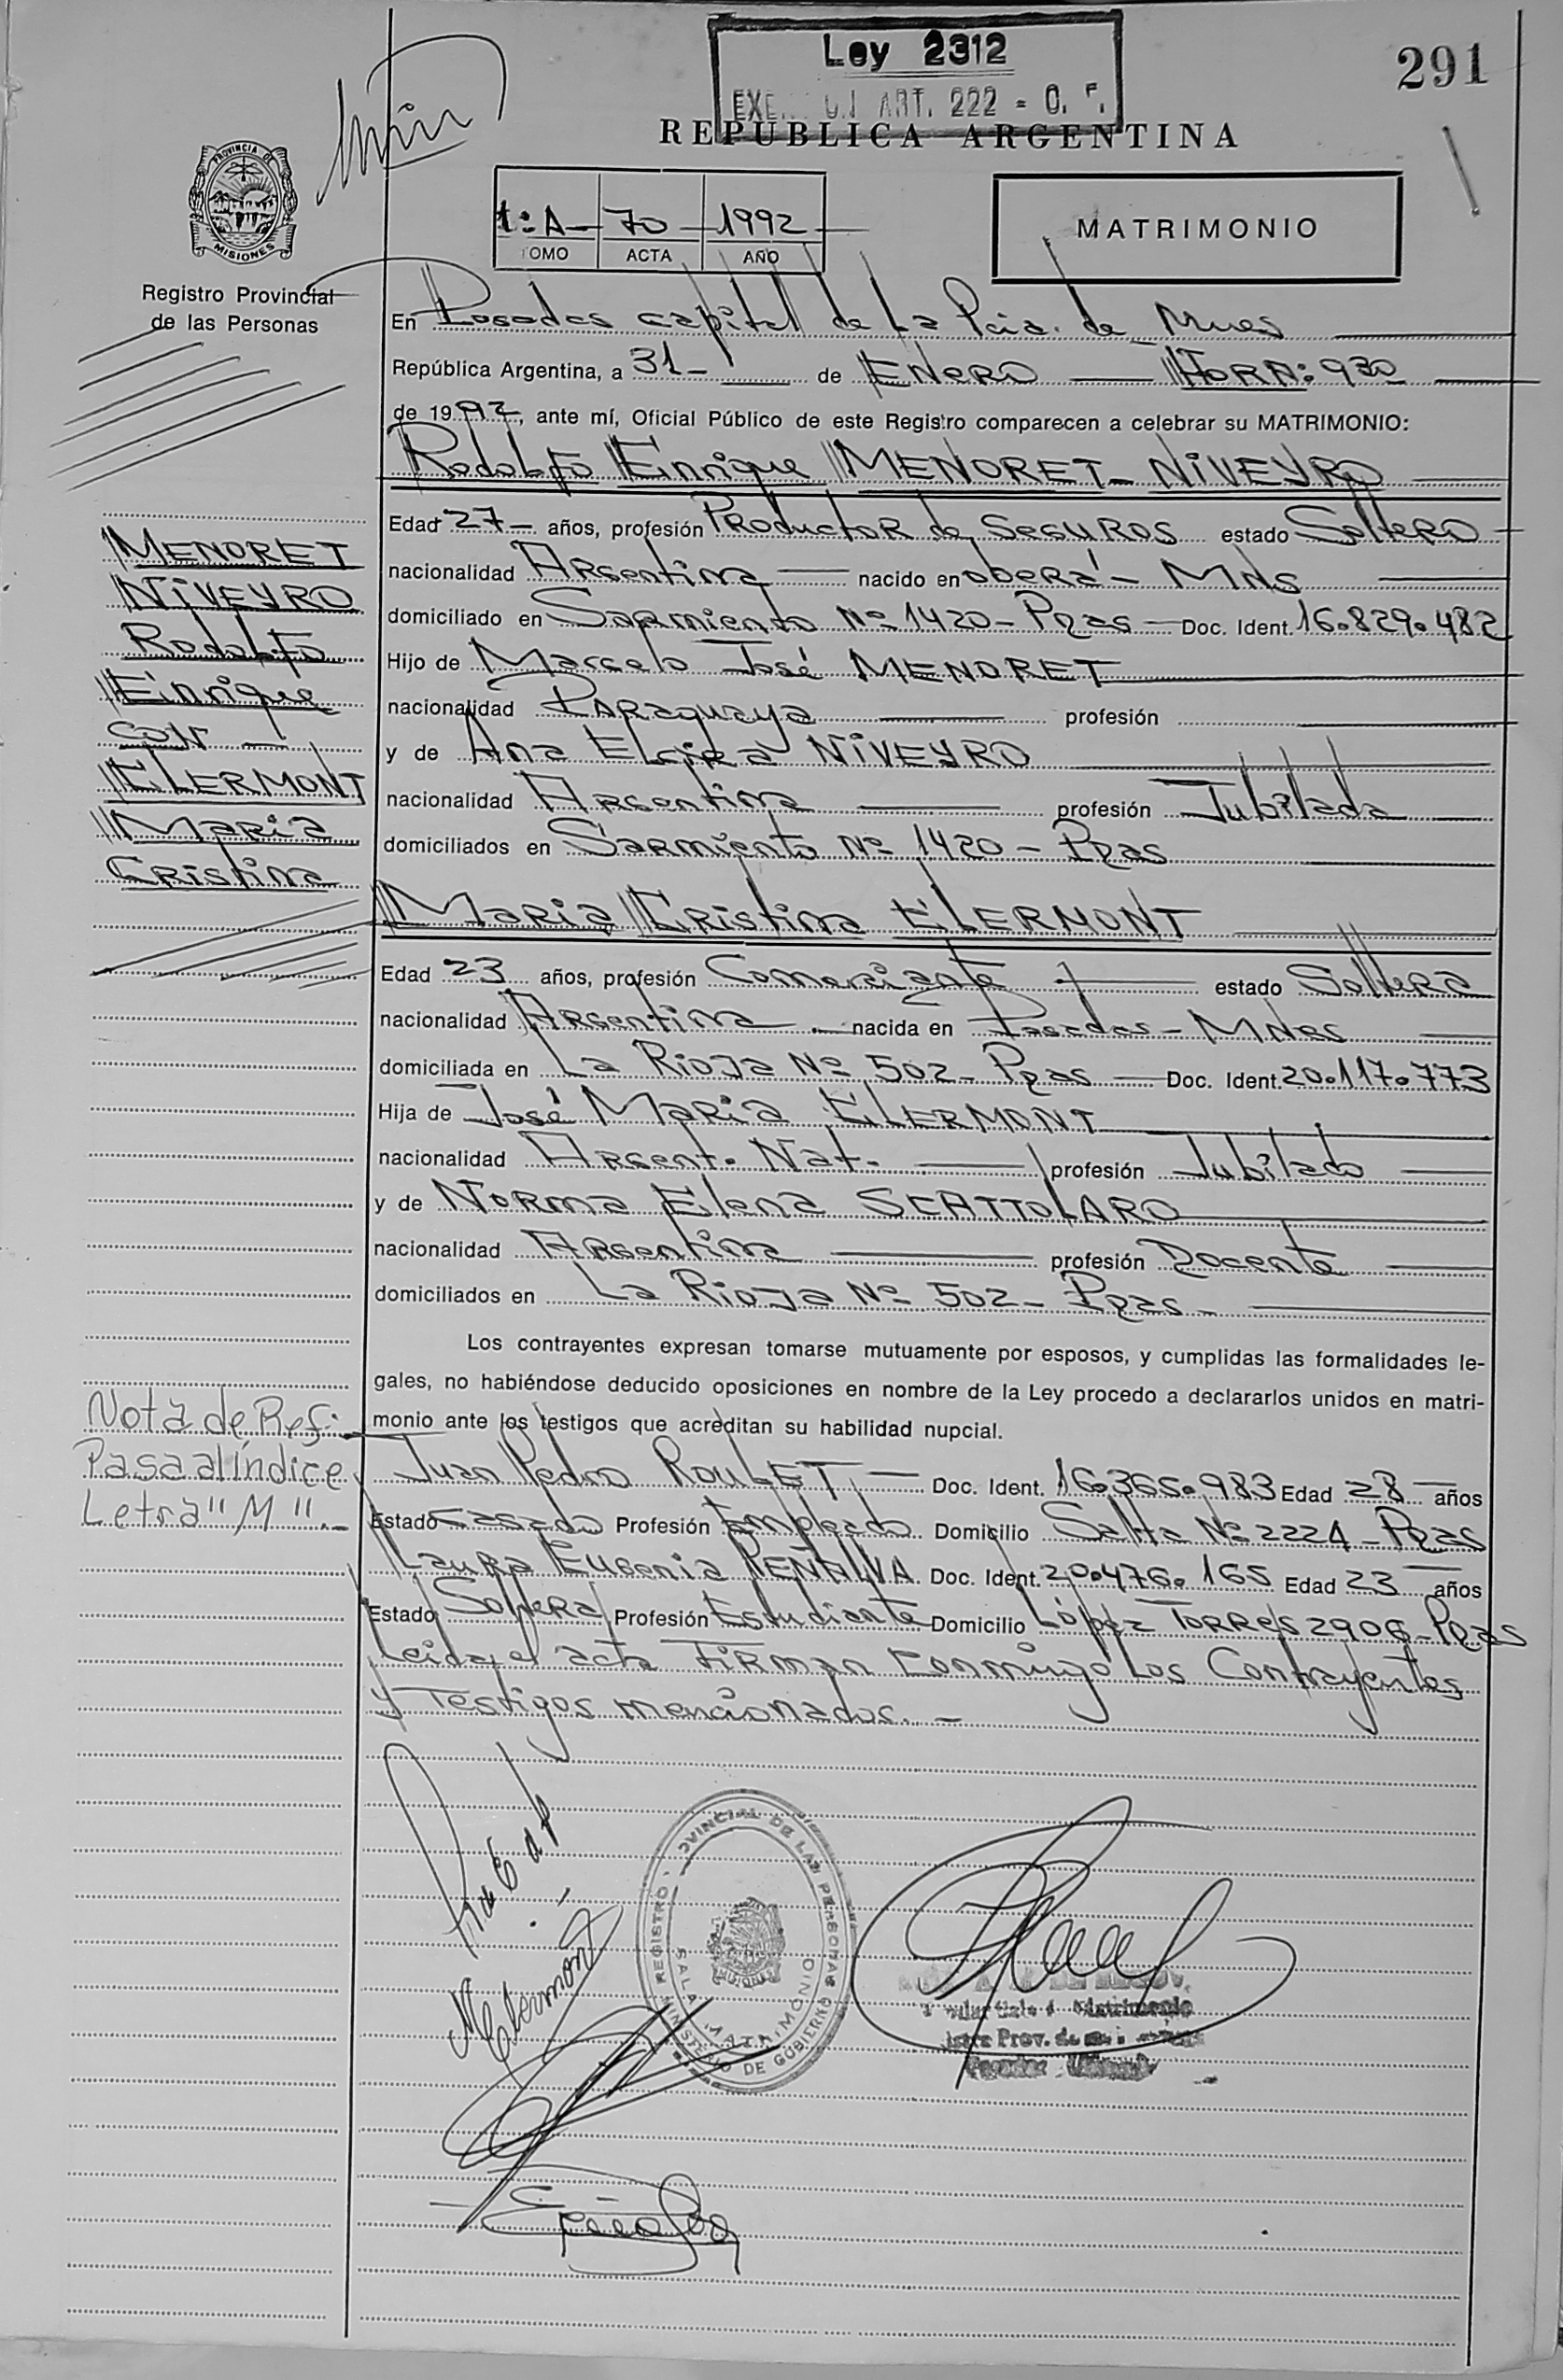 Ley 2312
291
ART. 222
REPUBLICA ARGENTINA
PROVINCIA DE
MISIONES
1:A- 70 - 1992
TOMO ACTA AÑO
MATRIMONIO
Registro Provincial
de las Personas
En Posadas capital de La Pcia. de Mnes
República Argentina, a 31- de ENERO HORA: 930
de 1992, ante mí, Oficial Público de este Registro comparecen a celebrar su MATRIMONIO:
Rodolfo Enrique MENORET NIVEYRO
Edad 27- años, profesión PRODUCTOR de SEGUROS estado SolteRO
nacionalidad ARgentina nacido en obeRá - MNs
domiciliado en SaRmiento Nº 1420- Pdas Doc. Ident. 16.829.482
Hijo de Marcelo José MENORET
nacionalidad PARaguaya profesión
y de Ana Elvira NIVEYRO
nacionalidad ARgentina profesión Jubilada
domiciliados en SaRmiento Nº 1420 - Pdas
MaRia CRistina CLERMONT
Edad 23 años, profesión Comerciante estado SolteRa
nacionalidad ARgentina nacida en Posadas - MNes
domiciliada en La Rioja Nº 502- Pdas Doc. Ident. 20.117.773
Hija de José MaRia CLERMONT
nacionalidad ARgent. Nat. profesión Jubilado
y de NoRma Elena SCATTOLARO
nacionalidad ARgentina profesión Docente
domiciliados en La Rioja Nº 502- Pdas
Los contrayentes expresan tomarse mutuamente por esposos, y cumplidas las formalidades le-
gales, no habiéndose deducido oposiciones en nombre de la Ley procedo a declararlos unidos en matri-
monio ante los testigos que acreditan su habilidad nupcial.
Juan Pedro ROULET Doc. Ident. 16.365.983 Edad 28 años
Estado casado Profesión Empleado Domicilio Salta Nº 2224 - Pdas
LauRa Eugenia PEÑALVA Doc. Ident. 20.476.165 Edad 23 años
Estado SolteRa Profesión Estudiante Domicilio López TORRes 2906 - Pdas
Leida el acta FiRman conmigo Los Contrayentes
y Testigos mencionados. -
MENORET
NIVEYRO
Rodolfo
Enrique
CON -
CLERMONT
MaRia
CRistina
Nota de Ref:
Pasa al índice
Letra "M".-
MClermont
REGISTRO PROVINCIAL DE LAS PERSONAS
MINISTERIO DE GOBIERNO
SALA MATRIMONIO
MISIONES
Matrimonio
Prov. de